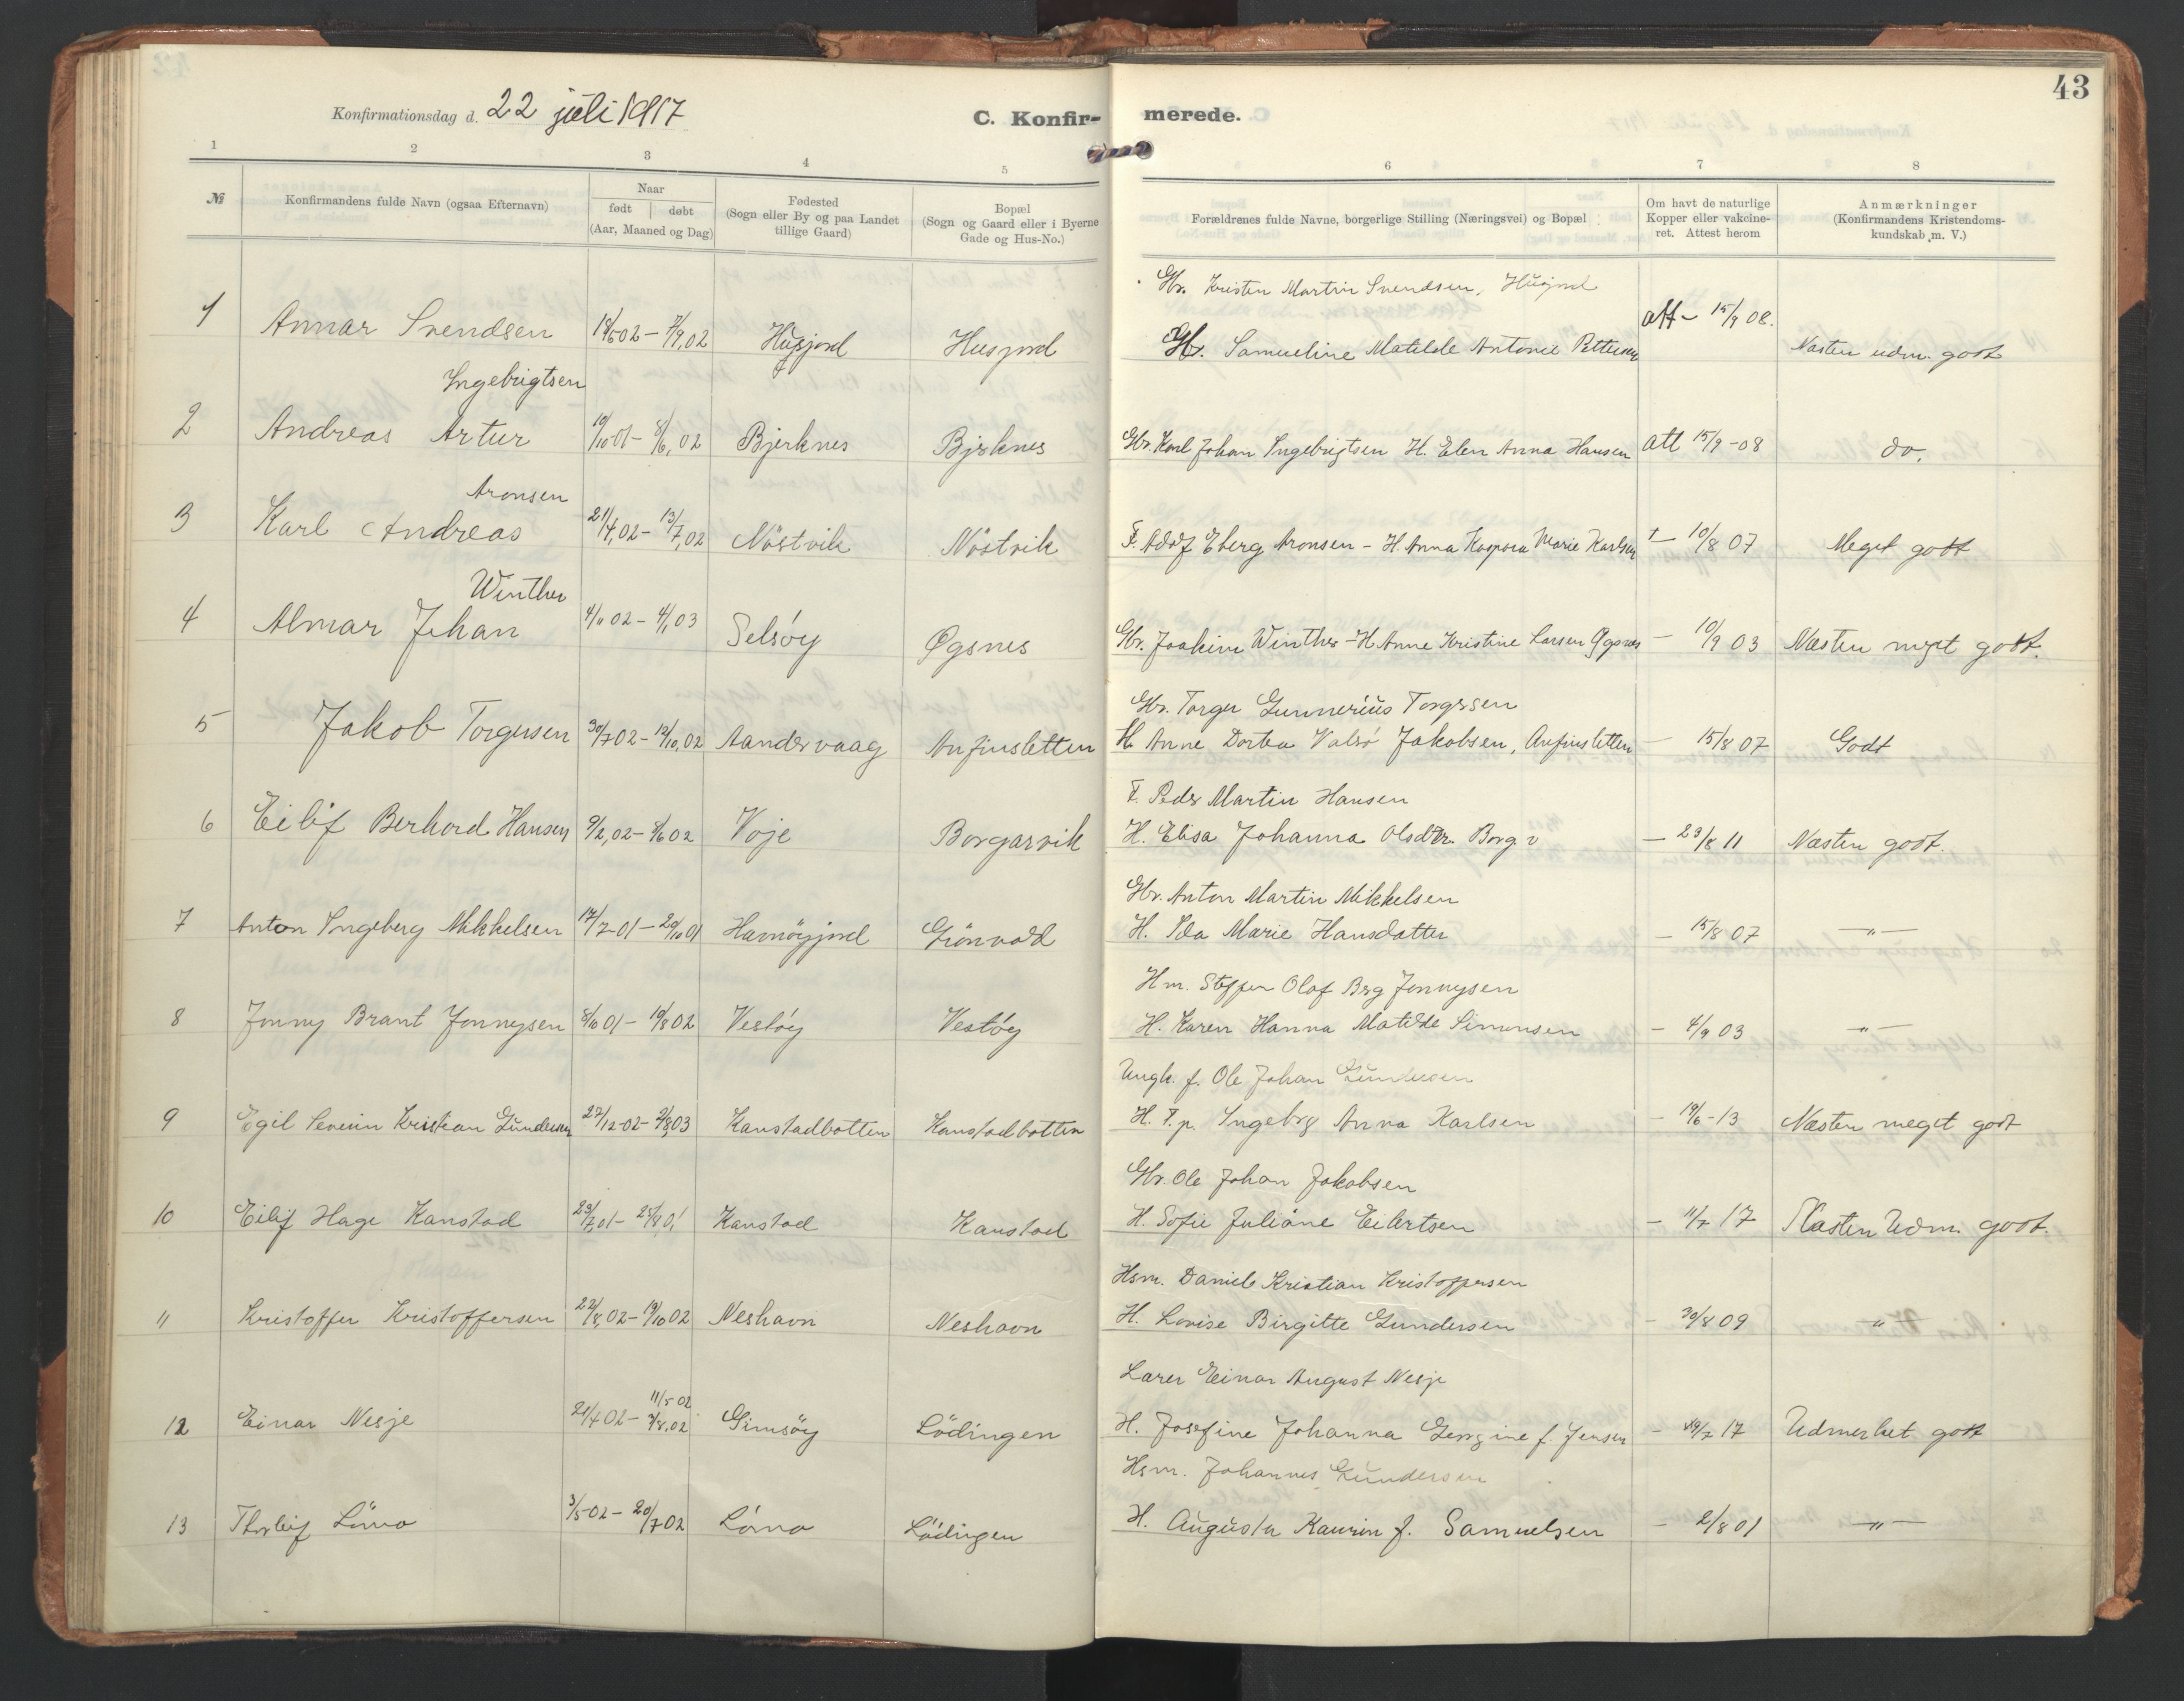 43
Konfirmationsdag d. 22 juli 1917
C. Konfir- merede.
1 2 3 4 5 6 7 8
№
Konfirmandens fulde Navn (ogsaa Efternavn)
Naar
født | døbt
(Aar, Maaned og Dag)
Fødested
(Sogn eller By og paa Landet
tillige Gaard)
Bopæl
(Sogn og Gaard eller i Byerne
Gade og Hus-No.)
Forældrenes fulde Navne, borgerlige Stilling (Næringsvei) og Bopæl
Om havt de naturlige
Kopper eller vakcine-
ret. Attest herom
Anmærkninger
(Konfirmandens Kristendoms-
kundskab m. V.)
Gbr. Kristen Martin Svendsen, Husjord
1 Annar Svendsen 18/5 02 - 7/9,02 Husjord Husjord Samueline Matilde Antonie Pettersen att - 15/9 08. Næsten udm. godt
Ingebrigtsen
2 Andreas Artur 10/10 01 - 8/6,02 Bjerknes Bjerknes Gbr. Karl Johan Ingebrigtsen H. Elen Anna Hansen att 15/9-08 do.
Aronsen
3 Karl Andreas 21/4,02 - 13/7,02 Nöstvik Nöstvik F. Adolf Eberg Aronsen - H. Anna Kaspara Marie Karlsen - 10/8 07 Meget godt
Winther
4 Almar Johan 4/11 02 - 4/1 03 Selsöy Øgsnes Gbr. Joakim Winther - H Anne Kristine Larsen Øgsnes - 10/9 03 Næsten meget godt.
Gbr. Torger Gunnerius Torgersen
5 Jakob Torgersen 30/7 02 - 12/10,02 Aandervaag Anfinsletten H. Anne Dortea Valsö Jakobsen, Anfinsletten - 15/8 07 Godt
F. Peder Martin Hansen
6 Eilif Berhard Hansen 9/2,02 - 8/6 02 Voje Borgarvik H. Elisa Johanna Olsdtr. Borg v - 23/8 11 Næsten godt.
Gbr. Anton Martin Mikkelsen
7 Anton Ingeberg Mikkelsen 17/7-01 - 20/10 01 Havnöyjord Grönvold H. Ida Marie Hansdatter - 15/8 07 -"-
Hm. Steffen Olaf Berg Jonnysen
8 Jonny Brant Jonnysen 8/10 01 - 10/8 02 Vestöy Vestöy H. Karen Hanna Matilde Simonsen - 4/9 03 -"-
Ungk. f. Ole Johan Gundersen
9 Egil Severin Kristian Gundersen 27/12-02 - 2/8 03 Kanstadbotten Kanstadbotten H. F. p. Ingeborg Anna Karlsen - 19/6-13 Næsten meget godt
Gbr. Ole Johan Jakobsen
10 Eilif Hage Kanstad 23/7 01 - 25/8 01 Kanstad Kanstad H. Sofie Juliane Eilertsen - 11/7 17 Næsten Udm. godt.
Hsm. Daniel Kristian Kristoffersen
11 Kristoffer Kristoffersen 22/8,02 - 19/10 02 Neshavn Neshavn H. Lovise Birgitte Gundersen - 30/8 09 -"-
Lærer Einar August Nesje
11/5 02
12 Einar Nesje 21/4 02 - 3/8,02 Gimsöy Lödingen H. Josefine Johanna Georgine f. Jensen - 19/7 17 Udmerket godt
Hsm. Johannes Gundersen
13 Thorleif Lönno 3/5-02 - 20/7 02 Lönno Lödingen H. Augusta Kaurin f. Samuelsen - 2/8 01 -"-